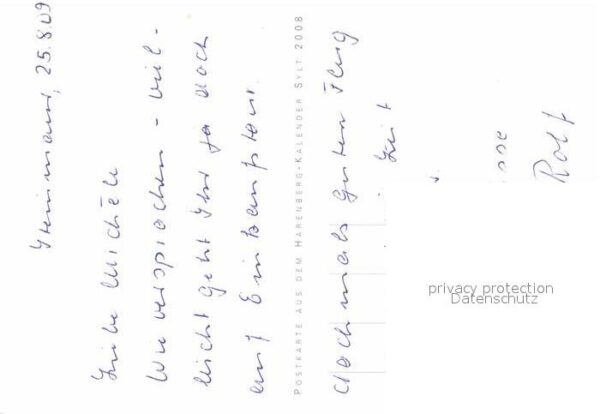 25.8.09
Liebe Michèle
Wie versprochen - viel-
leicht geht Ihr ja doch
auf Eintampftour.
POSTKARTE AUS DEM HARENBERG-KALENDER SYLT 2008
Nochmals guten Flug
Rolf
privacy protection
Datenschutz